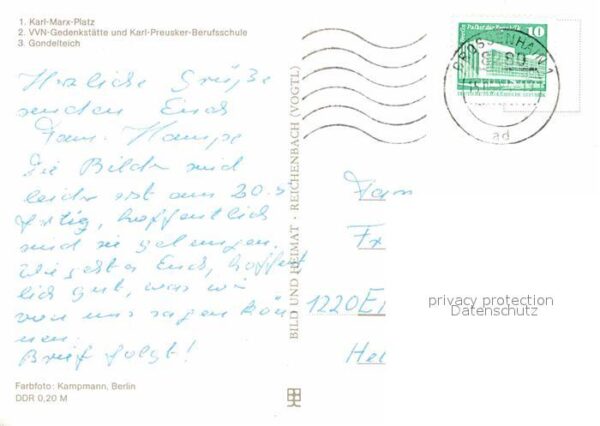 1. Karl-Marx-Platz
2. VVN-Gedenkstätte und Karl-Preusker-Berufsschule
3. Gondelteich
Herzliche Grüße
senden Euch
Fam. Hampe
Die Bilder sind
leider erst am 20.5
fertig, hoffentlich
sind sie gelungen.
Wie geht es Euch, hoffent
lich gut, was wir
von uns sagen kön
nen.
Brief folgt!
Farbfoto: Kampmann, Berlin
DDR 0,20 M
BILD UND HEIMAT · REICHENBACH (VOGTL)
10
GROSSENHAIN 1
ad
Fam
1220 Ei
privacy protection
Datenschutz